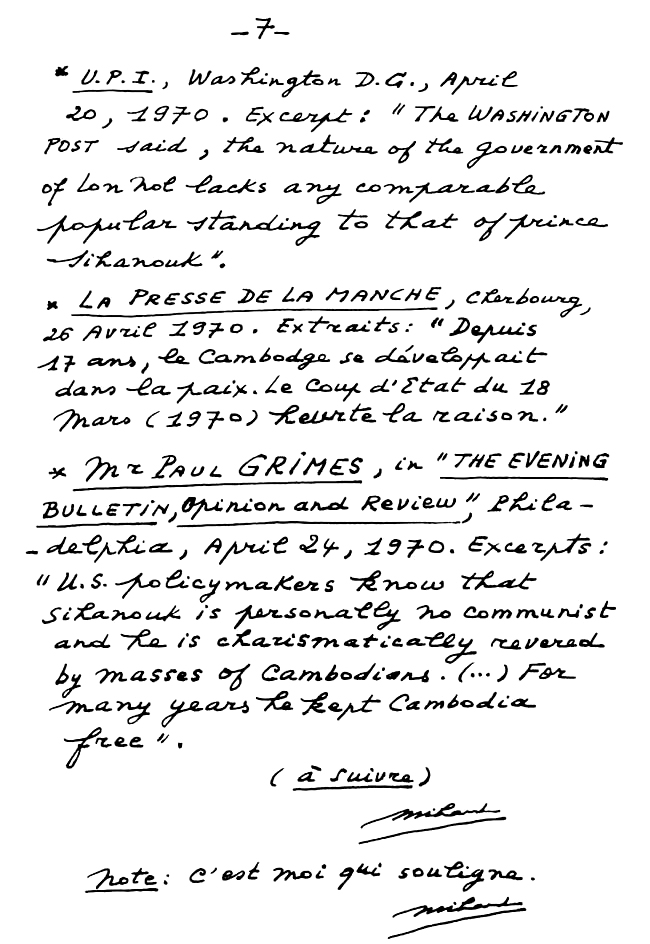 -7-
* U.P.I., Washington D.C., April
20, 1970. Excerpt: "The WASHINGTON
POST said, the nature of the government
of Lon Nol lacks any comparable
popular standing to that of prince
Sihanouk".
* LA PRESSE DE LA MANCHE, Cherbourg,
26 Avril 1970. Extraits: "Depuis
17 ans, le Cambodge se développait
dans la paix. Le Coup d'Etat du 18
Mars (1970) heurte la raison."
* Mr PAUL GRIMES, in "THE EVENING
BULLETIN, Opinion and Review", Phila-
-delphia, April 24, 1970. Excerpts:
"U.S. policymakers know that
Sihanouk is personally no communist
and he is charismatically revered
by masses of Cambodians. (...) For
many years he kept Cambodia
free".
(à suivre)
Note: C'est moi qui souligne.